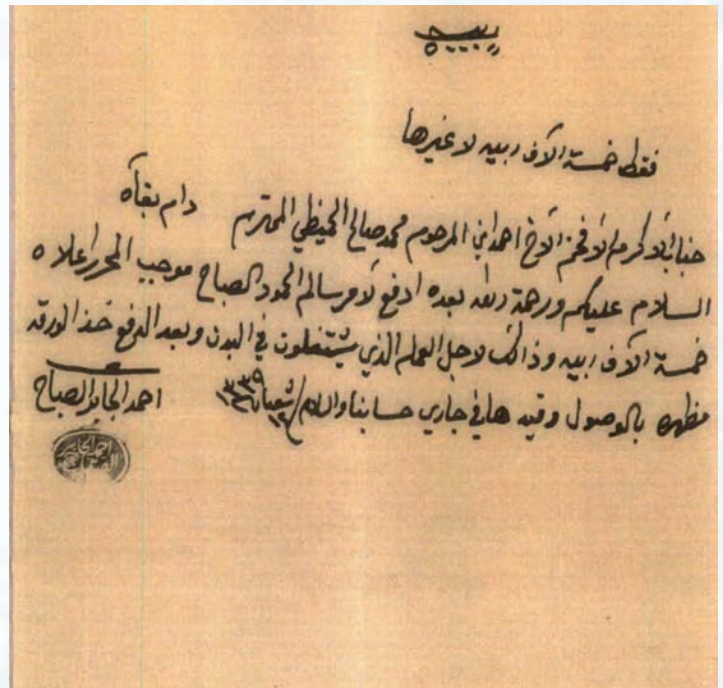 فقط خمسة الآف ربيه لا غيرها
جناب الاكرم الافخم الآخ احمد ابن المرحوم محمد صالح الحميظي المحترم دام بقآه
السلام عليكم ورحمة الله بعده ادفع لآمر سالم الحمود الصباح موجب المحرر اعلاه
خمسة الآف ربيه وذالك لاجل العمله الذي يشتغلون في البدن وبعد الدفع خذ الورقه
مظهره بالوصول وقيدها في جاري حسابنا والسلام شعبان ١٣٣٩
احمد الجابر الصباح
احمد الجابر